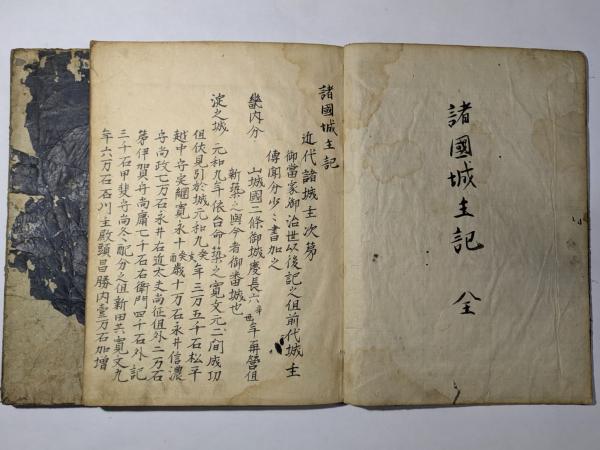 諸國城主記 全
諸國城主記
近代諸城主次第
御當家御治世以後記之但前代城主
傳聞分少々書加之
畿内分 山城國二條御城慶長六辛丑年再營但
新築之與今者御番城也
淀之城 元和九年依台命築之寛文元二間成功
但伏見引於城元和九癸亥年三万五千石松平
越中守定綱寛永十癸酉歳十万石永井信濃
守尚政七万石永井右近太夫尚征但外二万石
弟伊賀守尚庸七千石右衛門四千石外記
三千石甲斐守尚冬配分之但新田共寛文九
年六万石石川主殿頭昌勝内壹万石加増